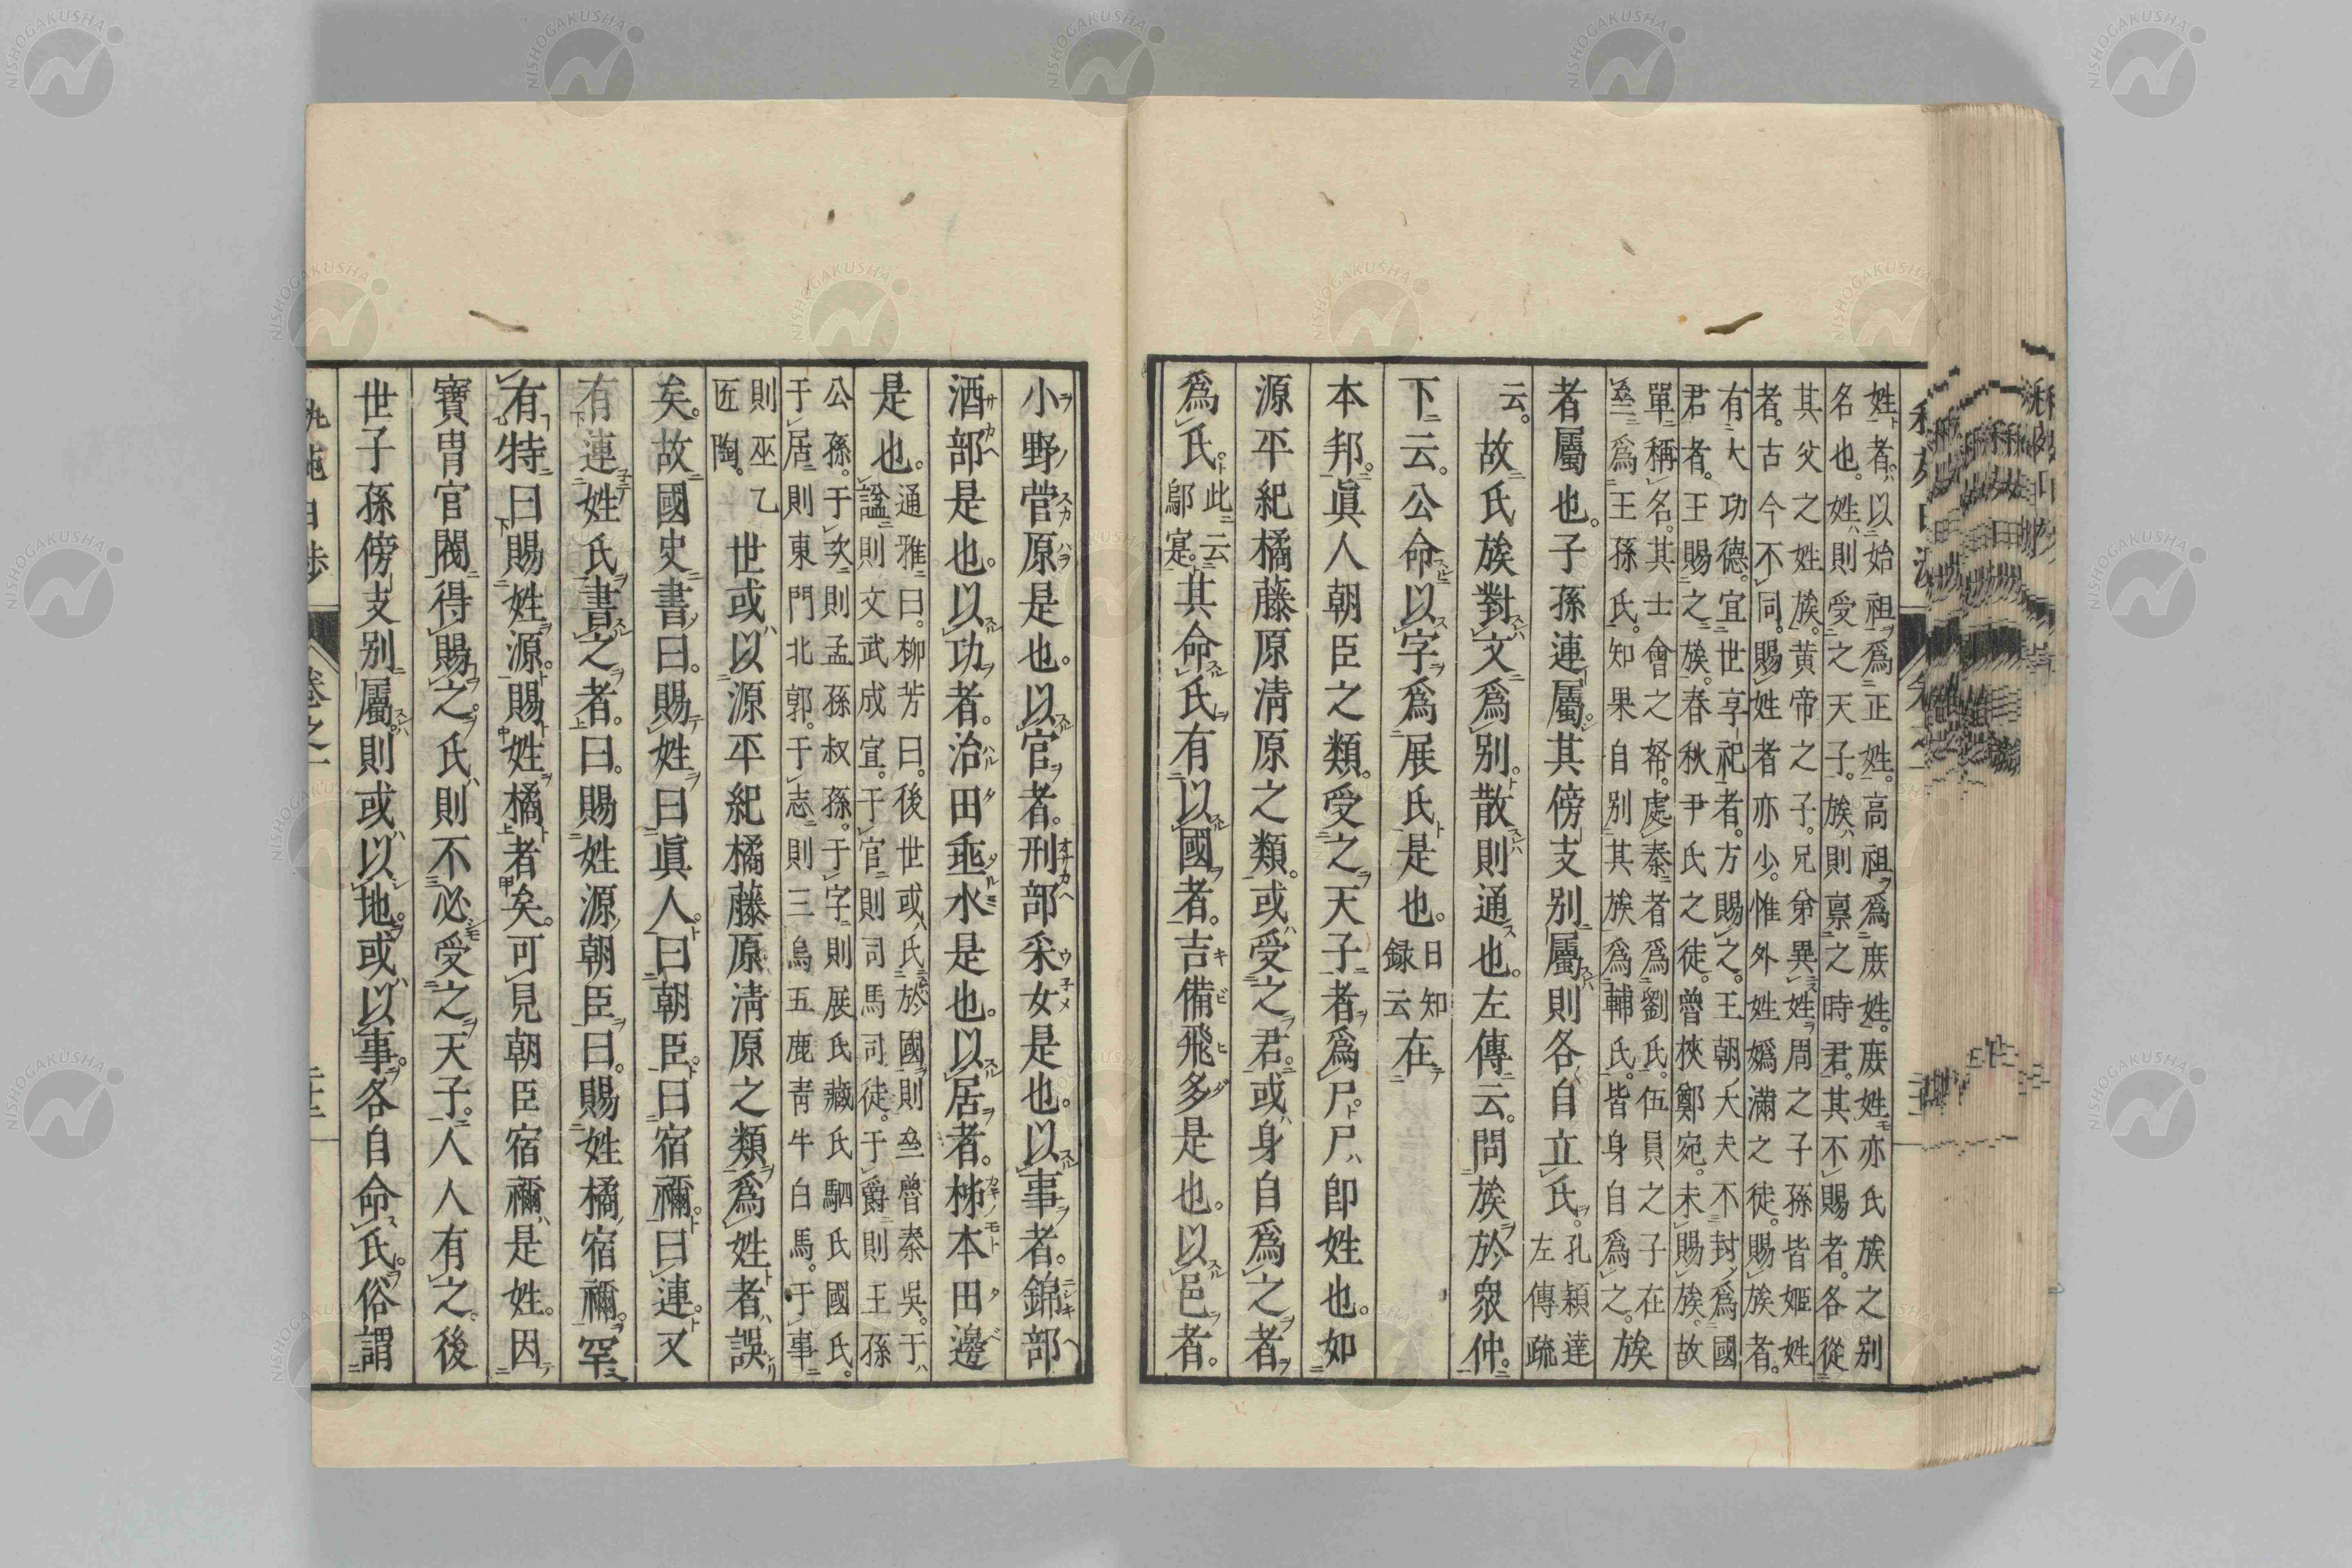 姓者以始祖爲正姓。高祖爲庶姓。庶姓亦氏族之别
名也。姓則受之天子。族則稟之時君。其不賜者。各從
其父之姓族。黃帝之子。兄弟異姓。周之子孫皆姬姓
者。古今不同。賜姓者亦少。惟外姓嬀滿之徒。賜族者。
有大功德。宜世享祀者。方賜之。王朝大夫不封爲國
君者。王賜之族。春秋尹氏之徒。魯挾鄭宛。未賜族。故
單稱名。其士會之帑。處秦者爲劉氏。伍員之子在
爲王孫氏。知果自别其族爲輔氏。皆身自爲之。族
者屬也。子孫連屬。其傍支别屬則各自立氏。孔穎達左傳疏
云。故氏族對文爲别。散則通也。左傳云。問族於衆仲。
下云。公命以字爲展氏是也。日知録云在
本邦。眞人朝臣之類。受之天子者。爲尸。尸即姓也。如
源平紀橘藤原淸原之類。或受之君。或身自爲之者
爲氏。此云鄔寔。其命氏有以國者。吉備飛多是也。以邑者。
小野菅原是也。以官者。刑部采女是也。以事者。錦部
酒部是也。以功者。治田垂水是也。以居者。柹本田邊
是也。通雅曰。柳芳曰。後世或氏於國則魯秦吳。于
諡則文武成宣。于官則司馬司徒。于爵則王孫
公孫。于次則孟孫叔孫。于字則展氏臧氏駟氏國氏。
于居則東門北郭。于志則三烏五鹿靑牛白馬。于事
則巫乙匠陶。世或以源平紀橘藤原淸原之類爲姓者誤
矣。故國史書曰。賜姓曰眞人。曰朝臣。曰宿禰。曰連。又
有連姓氏書之者。曰。賜姓源朝臣。曰。賜姓橘宿禰。罕
有特曰賜姓源。賜姓橘者矣。可見朝臣宿禰是姓。因
寶冑官閥得賜之。氏則不必受之天子。人人有之。後
世子孫傍支别屬。則或以地。或以事。各自命氏。俗謂